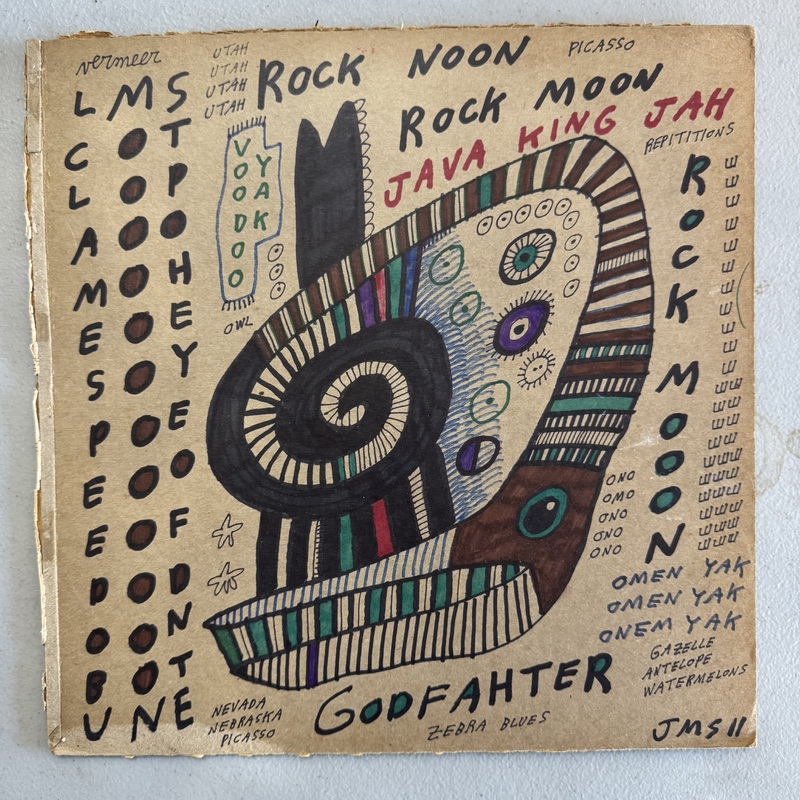 vermeer
UTAH
UTAH
UTAH
UTAH
ROCK NOON
PICASSO
ROCK MOON
JAVA KING JAH
REPITITIONS
LCLAMESPEEDOBU
MOOOOOOOOOOOON
STPOHEYEOFDNTE
VOODOO
YAK
OWL
ROCK MOOON
ONO
OMO
ONO
ONO
ONO
OMEN YAK
OMEN YAK
ONEM YAK
GAZELLE
ANTELOPE
WATERMELONS
NEVADA
NEBRASKA
PICASSO
GODFAHTER
ZEBRA BLUES
JMS 11